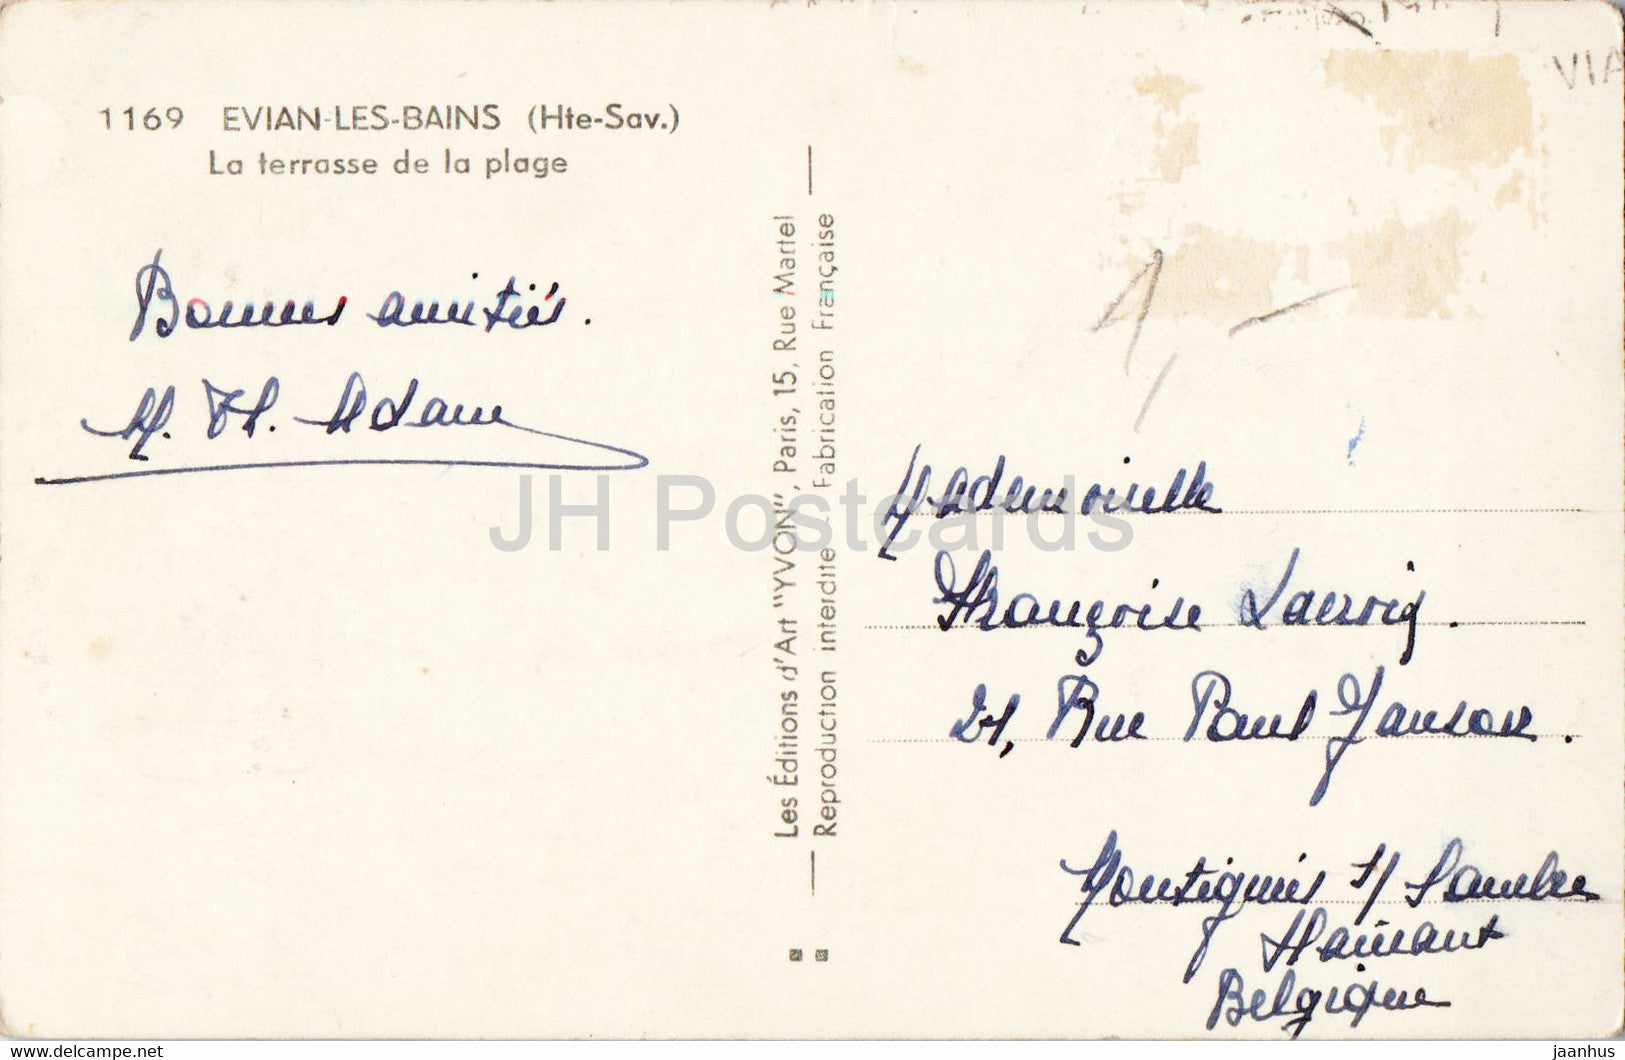 1169 EVIAN-LES-BAINS (Hte-Sav.)
La terrasse de la plage
Bonnes amitiés.
M. Th. Adam
Les Éditions d'Art "YVON", Paris, 15, Rue Martel
Reproduction interdite - Fabrication Française
VIA
1,-
Mademoiselle
Françoise
21, Rue Paul Janson.
Montignies s/ Sambre
Hainaut
Belgique
JH Postcards
delcampe.net
jaanhus